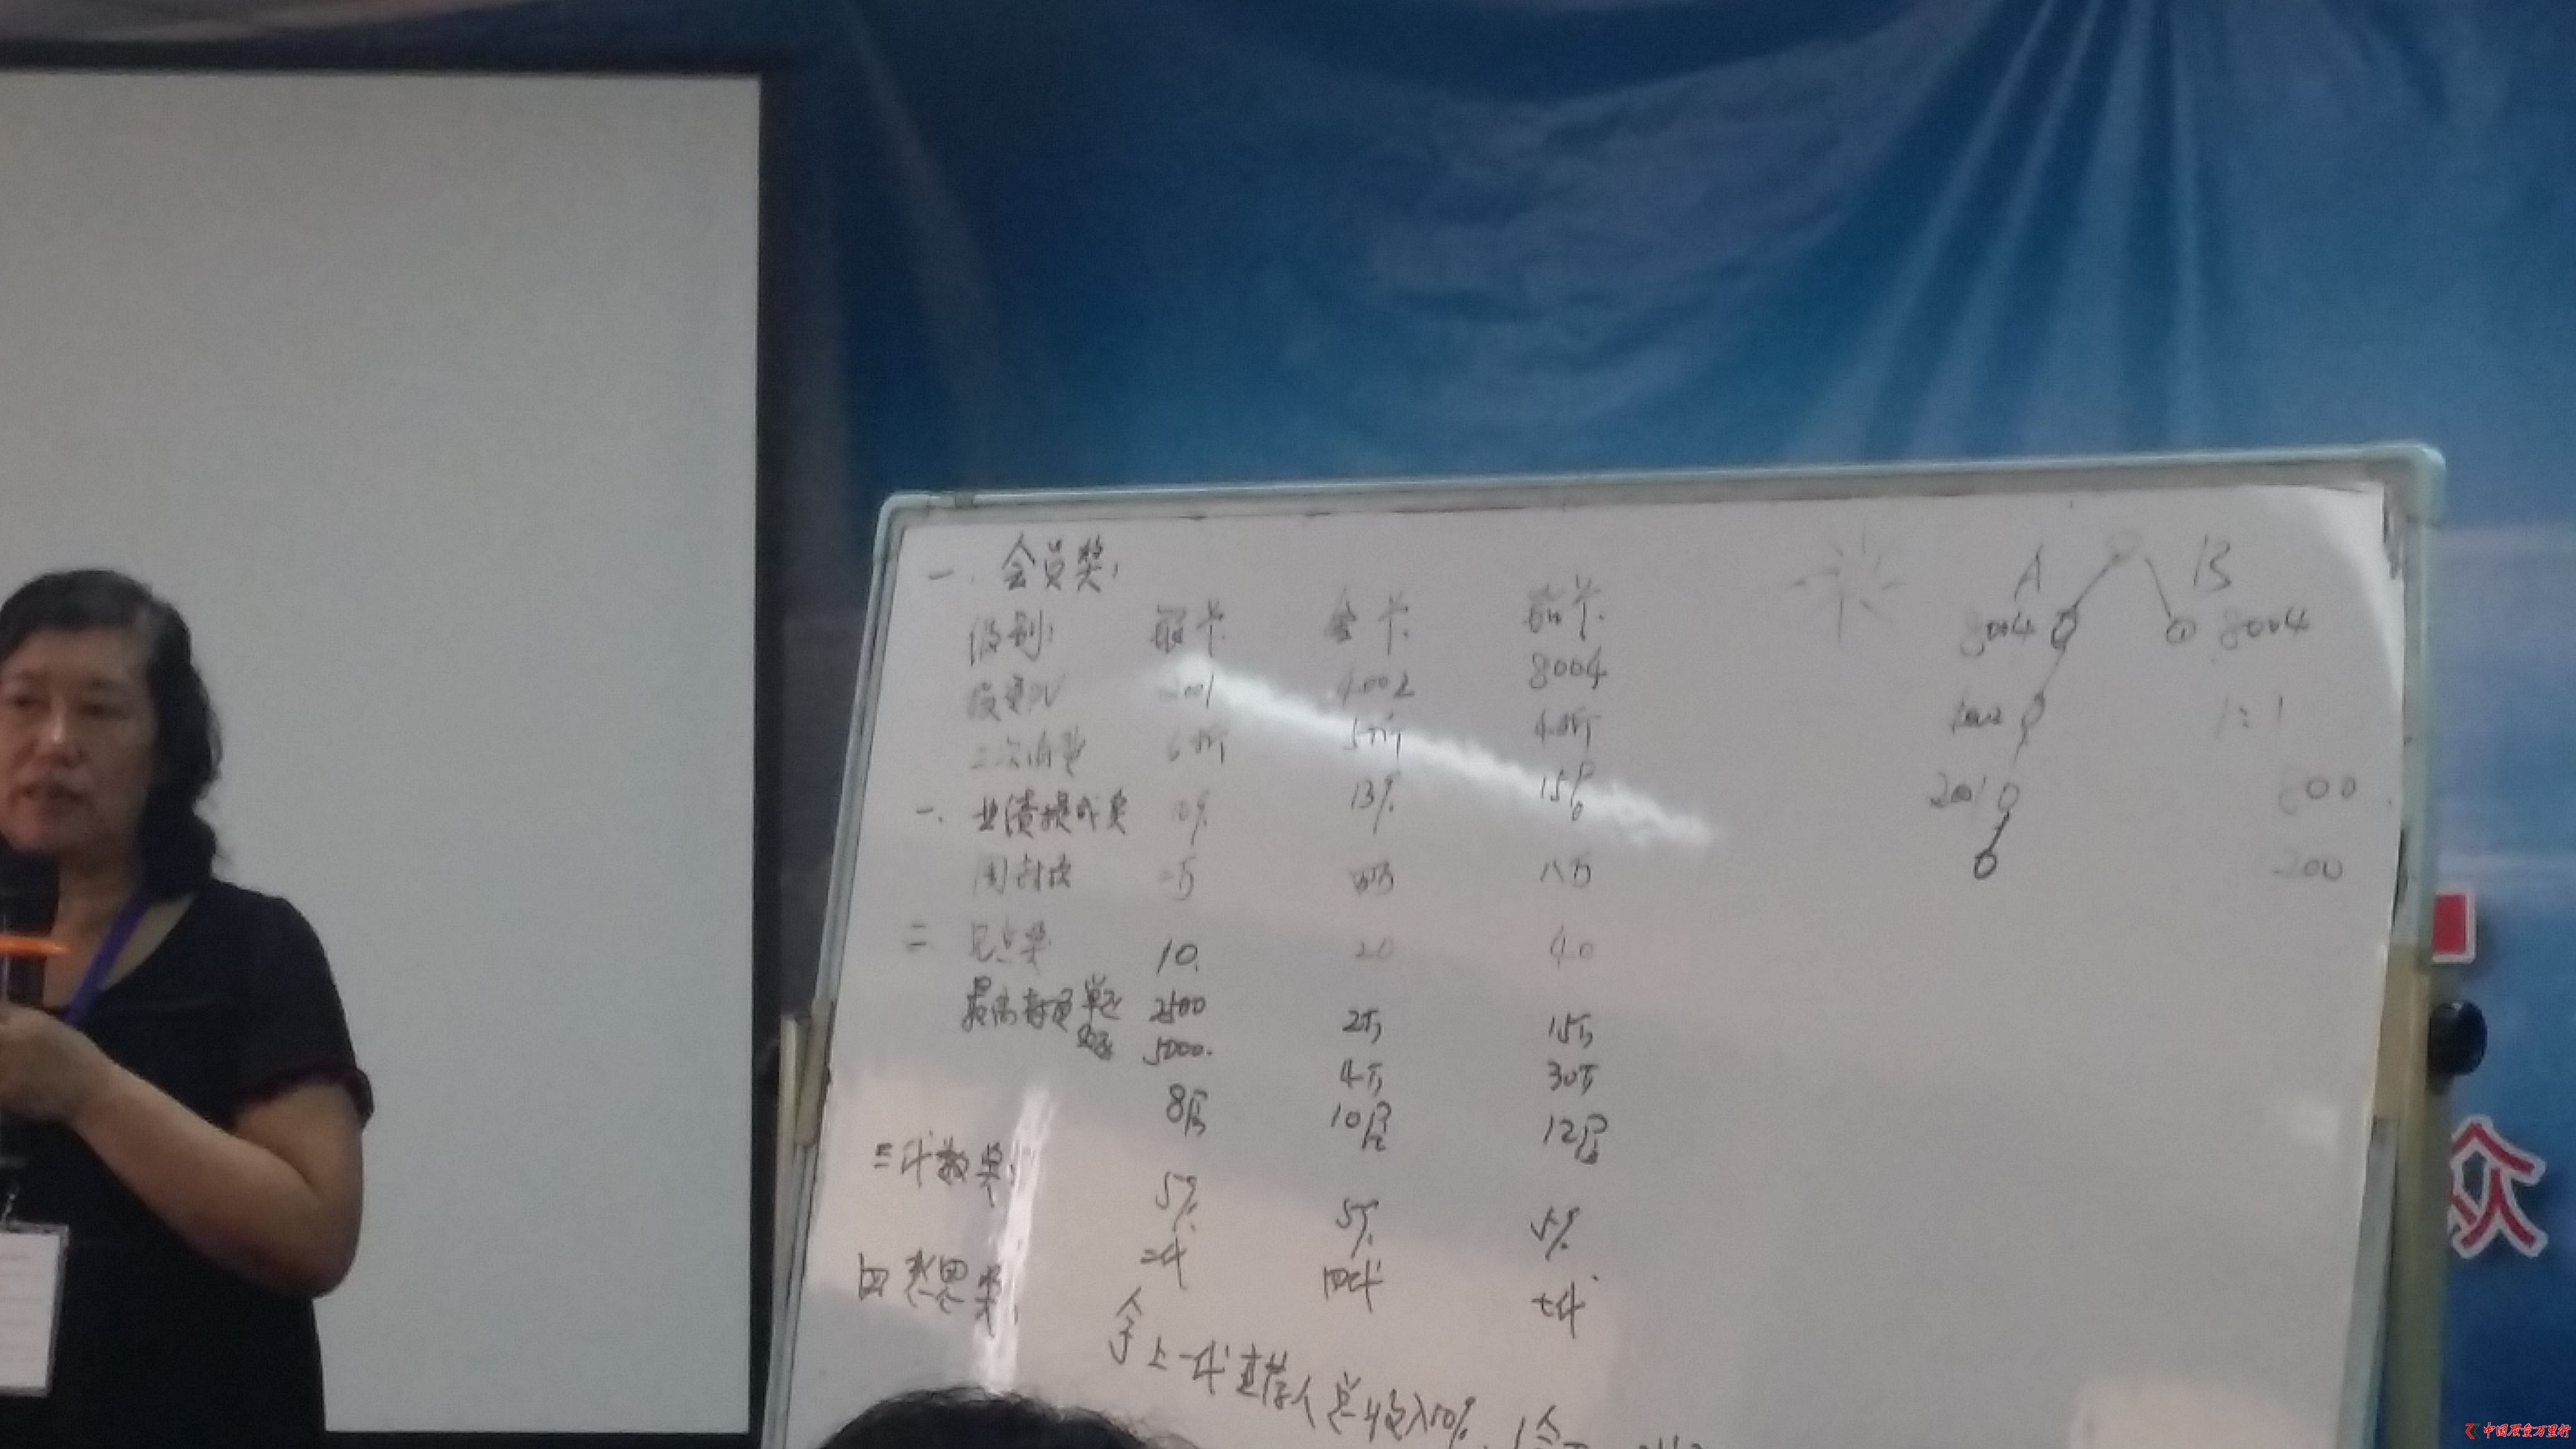 一. 会员奖:
级别: 银卡 金卡 钻卡
投资PV 2001 4002 8004
二次消费 6折 5折 4.5折
一. 业绩提成奖 10% 13% 15%
周封顶 二万 四万 八万
二 见点奖 10. 20 40
最高 2500 2万 15万
5000. 4万 30万
8层 10层 12层
三代数奖: 5% 5% 5%
二代 四代 七代
四感恩奖:
拿上一代直荐人总收入10%
A B
8004 8004
4002 1:1
2001 800
200
众
中国质量万里行